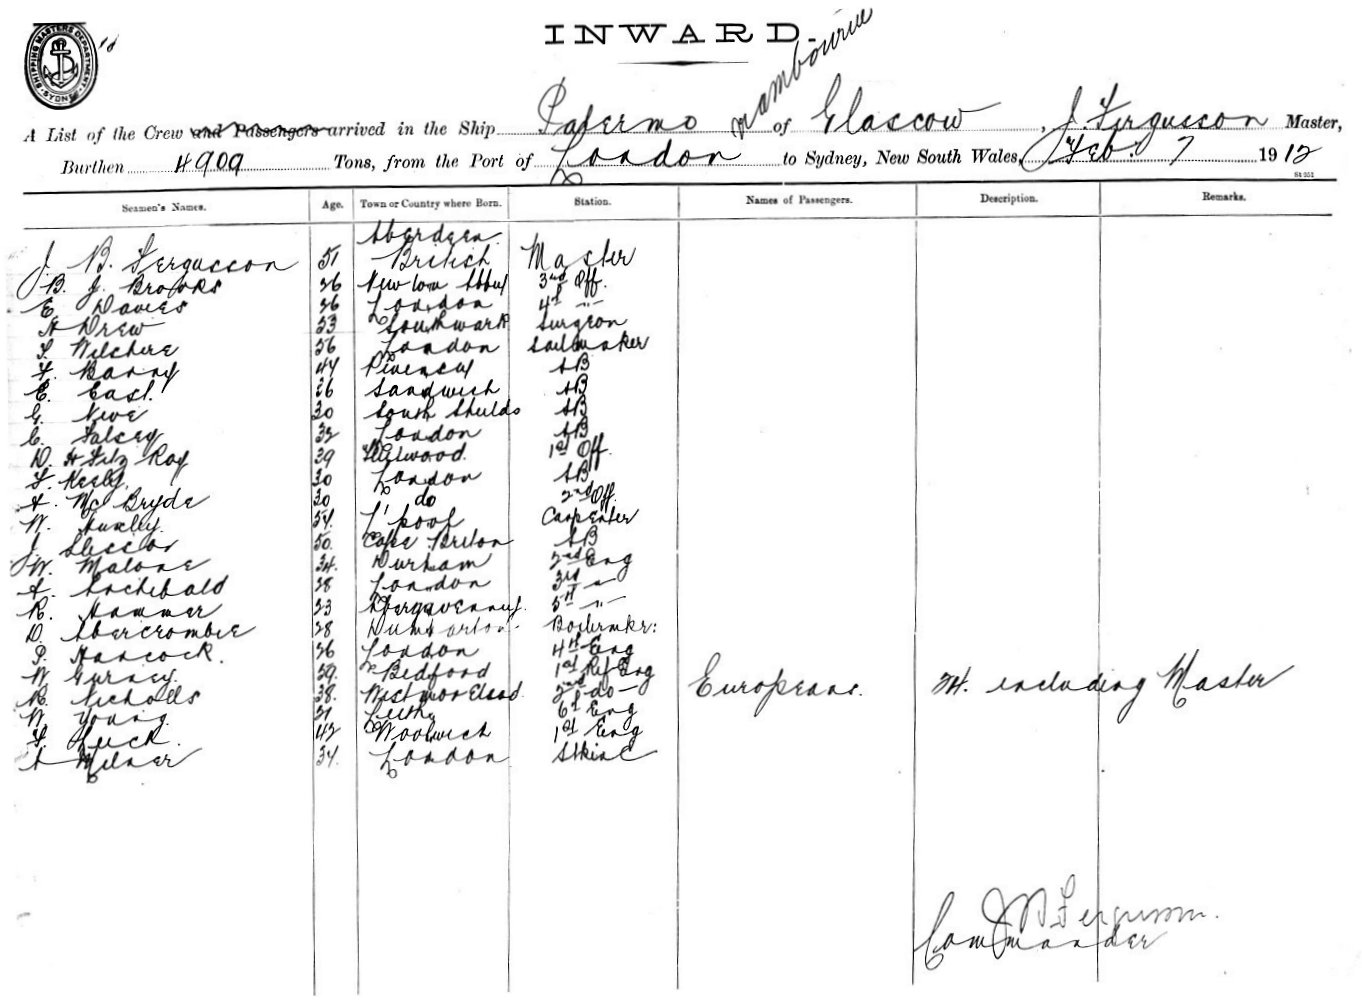 SHIPPING MASTERS DEPARTMENT SYDNEY
INWARD.
A List of the Crew and Passengers arrived in the Ship Palermo of Glascow, J. Fergusson Master,
Burthen 4909 Tons, from the Port of London to Sydney, New South Wales, Feb. 7 1912
St 951
Seamen's Names. Age. Town or Country where Born. Station. Names of Passengers. Description. Remarks.
Aberdeen
J. B. Fergusson 51 British Master
B. J. Brooks 26 Newton Abbot 3rd Off.
E. Davies 26 London 4th "
A Drew 23 Southwark Surgeon
Wilshire 56 London Sailmaker
Barry 44 AB
E. East. 26 Sandwich AB
G. Neve 30 South Shields AB
C. Falcey 32 London AB
D. H Fitz Roy 39 1st Off.
F. Keely 30 London AB
A. McBryde 30 do 2nd Off.
W. Huxley 54. L'pool Carpenter
J. Slessor 50. Cape Breton AB
W. Malone 34. Durham 2nd Eng
A. Archibald 28 London 3rd "
R. Hammer 23 Abergavenny 5th "
D. Abercrombie 28 Dumbarton Boilermkr:
P. Hancock. 26 London 4th Eng
W Gurney. 29. Bedford 1st Ref Eng
R. Nicholls 38. 2nd do
W Young 21 Leith 6th Eng
F. Luck. 42 Woolwich 1st Eng
A Milner 34. London
Europeans. 24. including Master
J B Fergusson.
Commander